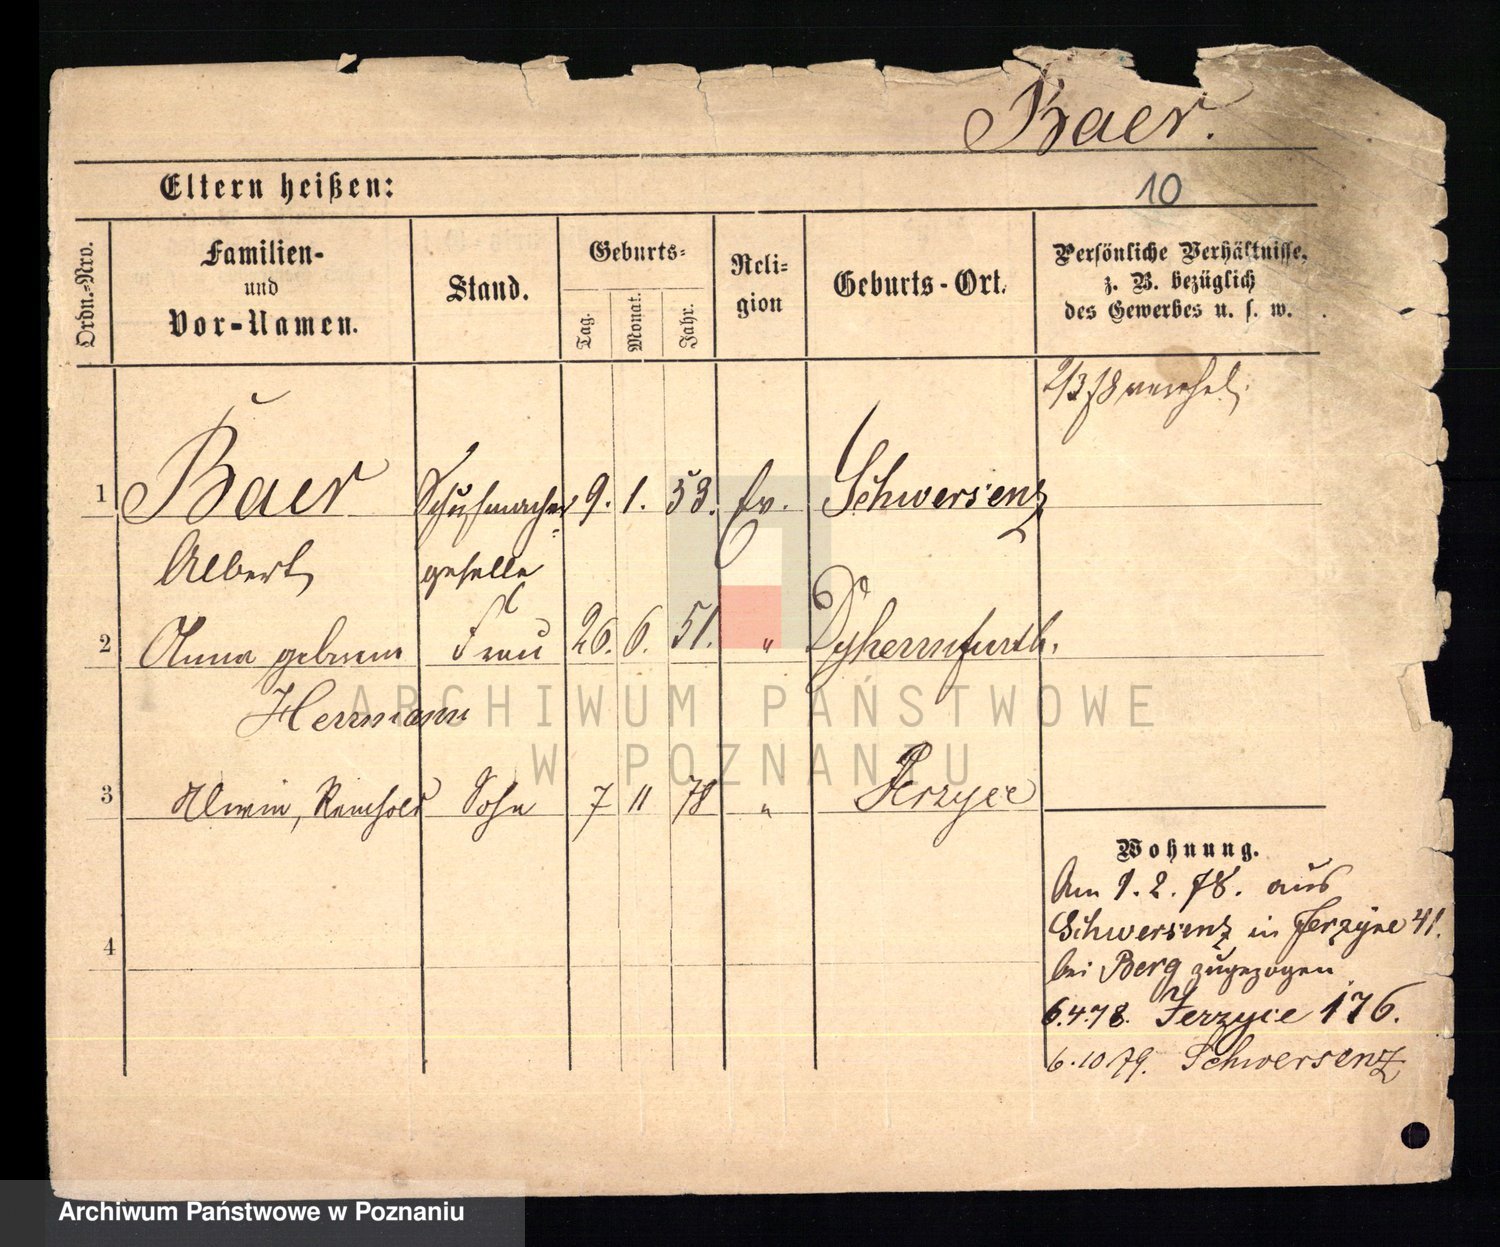 Baer.
Eltern heißen:
10
Ordn.-Nro.
Familien-
und
Vor-Namen.
Stand.
Geburts-
Tag.
Monat.
Jahr.
Reli-
gion
Geburts-Ort.
Persönliche Verhältnisse,
z. B. bezüglich
des Gewerbes u. s. w.
2/3 78
1 Baer Schuhmacher 9. 1. 53. Ev. Schwersenz
Albert geselle
2 Anna geborene Frau 26. 6. 51. " Dyhernfurth.
Herrmann
3 Alwin, Reinhold Sohn 7 11 78 " Jerzyce
4
Wohnung.
Am 1. 2. 78. aus
Schwersenz in Jerzyce 41.
bei Berg zugezogen
6.4.78. Jerzyce 176.
6.10.79. Schwersenz
ARCHIWUM PAŃSTWOWE
W POZNANIU
Archiwum Państwowe w Poznaniu